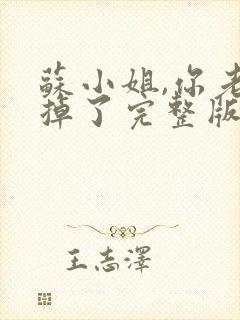 蘇小姐,你老
掉了完整版
王志澤